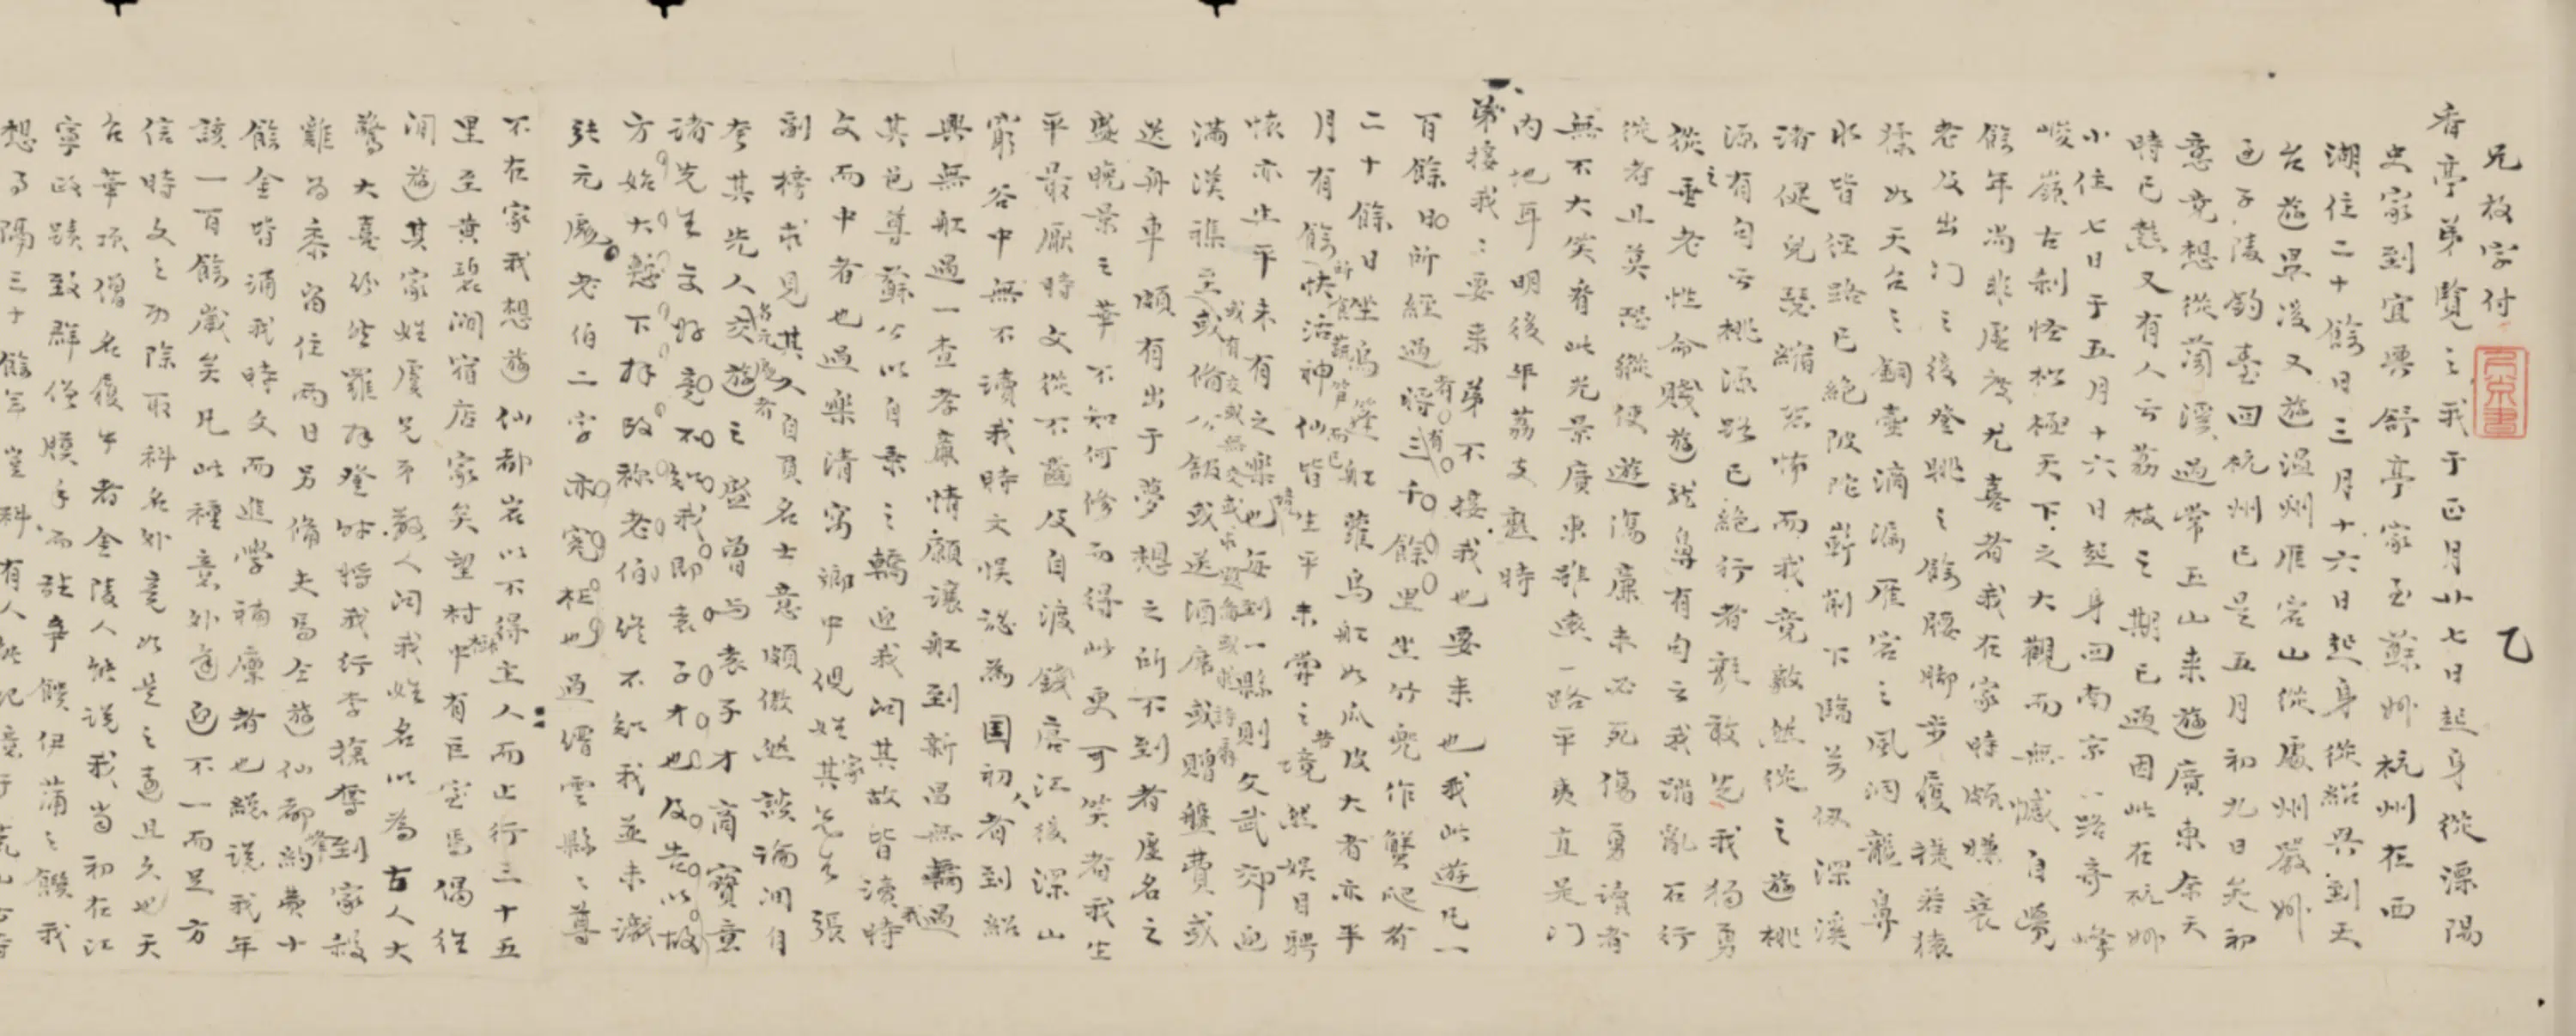 兄放字付
乙
香亭弟覽之我于正月廿七日起身從漂陽
史家到宜興舒亭家至蘇州杭州在西
湖住二十餘日三月十六日起身從紹興到天
台遊畢後又遊溫州雁宕山從處州嚴州
過子陵釣臺回杭州已是五月初九日矣初
意竟想從蘭溪過常玉山來遊廣東奈天
時已熱又有人云荔枝之期已過因此在杭州
小住七日于五月十六日起身回南京一路奇峰
峻嶺古剎怪松極天下之大觀而無憾自覺
餘年尚非虛度尤喜者我在家時頗嫌衰
老及出門之後登眺之餘腰腳步履捷若猿
猱如天台之銅壺滴漏雁宕之風洞龍鼻
水皆徑路已絕陂陀嶄削下臨萬仞深溪
諸健兒瑟縮怖而我竟毅然從之遊桃
源有句云桃源路已絕行者競敢先我獨勇
從之垂老性命賤遊龍鼻有句云我踏亂石行
從者止莫恐縱使遊傷廉未必死傷勇讀者
無不大笑看此光景廣東雖遠一路平夷直是門
內地耳明後年荔支熟時
弟接我我要來弟不接我也要來也我此遊凡一
百餘日所經過將有三千餘里坐竹兜作蟹爬者
二十餘日坐烏篷船蘆烏船如瓜皮大者亦平
月有餘快活神仙皆生平未嘗之境然娛目騁
懷亦生平未有之樂也每到一縣則文武郊迎
滿漢雜至或備公館或送酒席或贈盤費或
送舟車頗有出于夢想之所不到者虛名之
盛晚景之華不知何修而得此更可笑者我生
平最厭時文從不齒及自渡錢唐江後深山
窮谷中無不讀我時文悞認為國初人者到紹
興無船過一查孝廉情願讓船到新昌無轎過
其邑尊蘇公以自乘之轎迎我問其故皆讀時
文而中者也過樂清窩鄉中倪姓其家先生張
副榜求見其人自負名士意頗傲然談論間自
夸其先人交遊之盛曾與袁子才商寶意
諸先生交好竟不知我即袁子才也及告以故
方始大慙下拜改稱老伯終不知我並未識
張元處老伯二字亦寃枉也過縉雲縣縣尊
不在家我想遊仙都岩以不得主人而止行三十五
里至黄碧澗宿店家矣望村中有巨室焉偶往
閒遊其家姓虞兄弟数人問我姓名以為古人大
驚大喜紛紛羅拜登時將我行李搶奪到家殺
雞為黍留住兩日另備夫馬仝遊仙都約費十
餘金皆誦我時文而進學補廩者也總說我年
該一百餘歲矣凡此種意外遭逢不一而足方
信時文之功除取科名外竟如是之遠且久也天
台華頂僧名履中者金陵人能說我當初在江
寧政蹟致群僧膜手而話爭饌伊蒲之饌我
想了隔三十餘年豈料有人